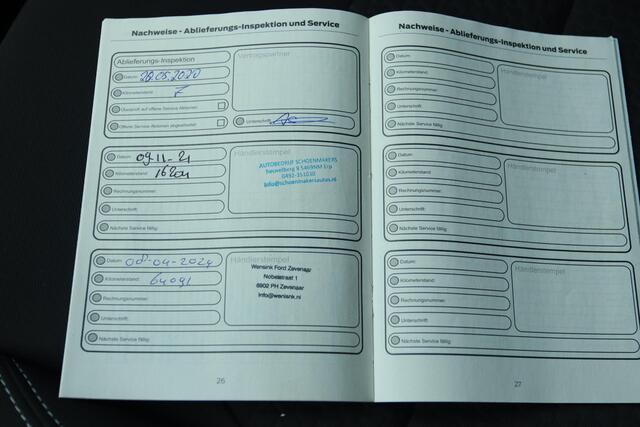 Nachweise - Ablieferungs-Inspektion und Service
Ablieferungs-Inspektion
Datum: 28.05.2020
Kilometerstand: 7
Überprüft auf offene Service-Aktionen:
Offene Service-Aktionen abgearbeitet:
Vertragspartner
Unterschrift:
Datum: 09-11-21
Kilometerstand:
Rechnungsnummer:
Unterschrift:
Nächste Service fällig:
Händlerstempel
AUTOBEDRIJF SCHOENMAKERS
heuvelberg 9 5469NM Erp
0492-351030
info@schoenmakersautos.nl
Datum: 08-04-2024
Kilometerstand: 64091
Rechnungsnummer:
Unterschrift:
Nächste Service fällig:
Händlerstempel
Wensink Ford Zevenaar
Nobelstraat 1
6902 PH Zevenaar
info@wensink.nl
26
Nachweise - Ablieferungs-Inspektion und Service
Datum:
Kilometerstand:
Rechnungsnummer:
Unterschrift:
Nächste Service fällig:
Händlerstempel
Datum:
Kilometerstand:
Rechnungsnummer:
Unterschrift:
Nächste Service fällig:
Händlerstempel
Datum:
Kilometerstand:
Rechnungsnummer:
Unterschrift:
Nächste Service fällig:
Händlerstempel
27